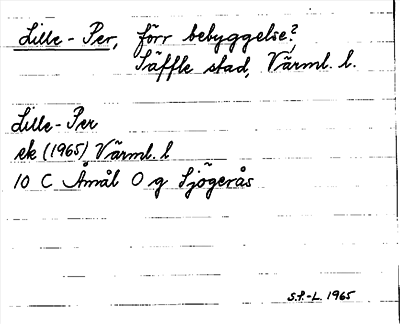 Lille-Per, förr bebyggelse?
Säffle stad, Värml. l.
Lille-Per
ek (1965) Värml. l
10 C Åmål O g Sjögerås
S.F.-L. 1965